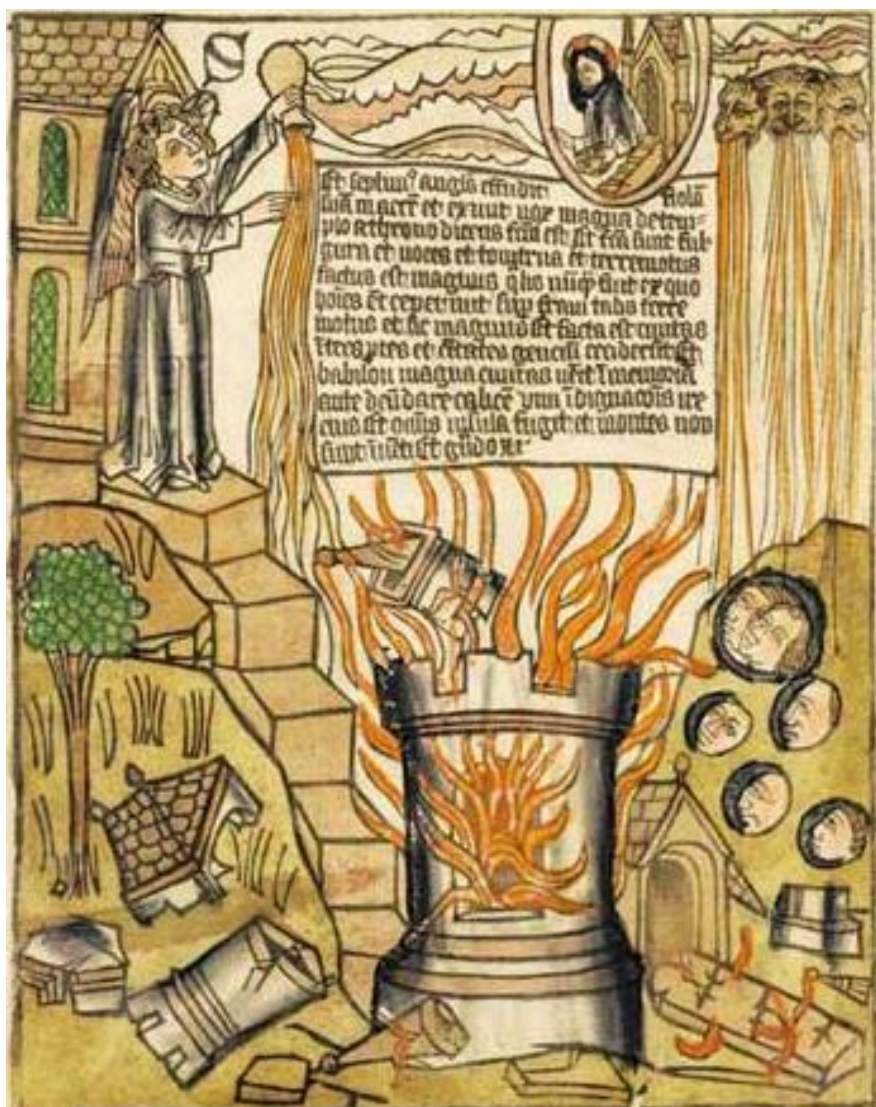 Et septim⁹ angls effudit fiolã
suã in aerẽ et exiuit uox magna de tem=
plo a throno dicens fcm est Et fcã sunt ful
gura et uoces et tonitrua et terremotus
factus est magnus q̃lis nũq̃ fuit ex quo
hoĩes ceperunt sup talis terre
motus et sic magnus Et facta est ciuitas
ĩ tres ptes et ciuitates genciũ ceciderũt Et
babilon magna ciuitas uẽit ĩ memoriã
ante deũ dare calicẽ vini ĩdignacõis ire
eius Et omĩs insula fugit et montes non
sunt ĩuẽti Et